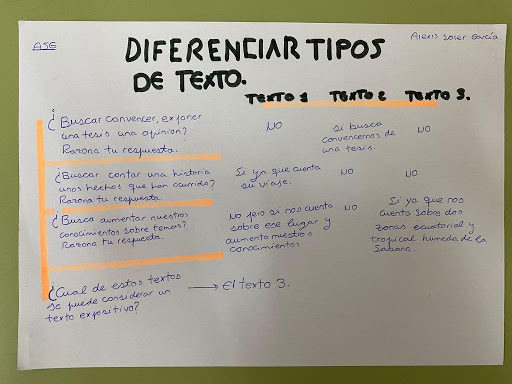 ASG
Alexis Soler García
DIFERENCIAR TIPOS
DE TEXTO.
TEXTO 1 TEXTO 2 TEXTO 3.
¿Buscar convencer, exponer
una tesis una opinion?
Razona tu respuesta.
NO
Si busca
convencernos de
una tesis.
NO
¿Buscar contar una historia
unos hechos que han ocurrido?
Razona tu respuesta.
Si ya que cuenta
su viaje.
NO
NO
¿Busca aumentar nuestros
conocimientos sobre temas?
Razona tu respuesta.
No pero si nos cuenta
sobre ese lugar y
aumenta nuestros
conocimientos
NO
Si ya que nos
cuenta sobre dos
zonas ecuatorial y
tropical humeda de la
Sabana.
¿Cual de estos textos
se puede considerar un
texto expositivo?
El texto 3.